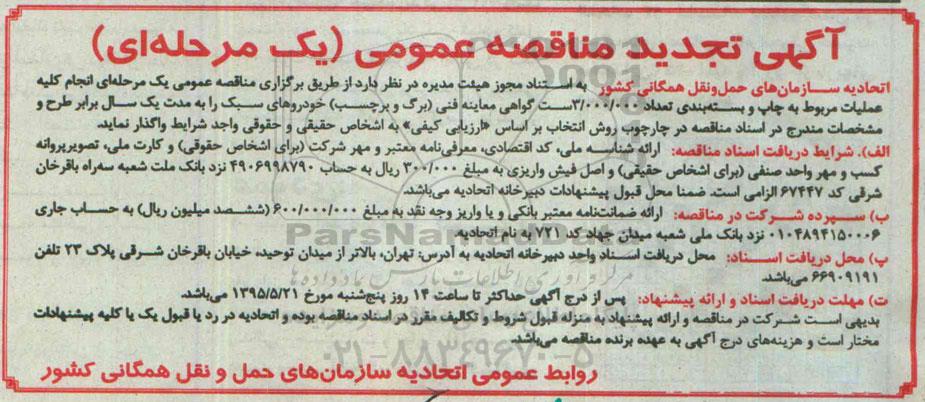 آگهی تجدید مناقصه عمومی (یک مرحله‌ای)
اتحادیه سازمان‌های حمل‌ونقل همگانی کشور به استناد مجوز هیئت مدیره در نظر دارد از طریق برگزاری مناقصه عمومی یک مرحله‌ای انجام کلیه
عملیات مربوط به چاپ و بسته‌بندی تعداد ۳/۰۰۰/۰۰۰ست گواهی معاینه فنی (برگ و برچسب) خودروهای سبک را به مدت یک سال برابر طرح و
مشخصات مندرج در اسناد مناقصه در چارچوب روش انتخاب بر اساس «ارزیابی کیفی» به اشخاص حقیقی و حقوقی واجد شرایط واگذار نماید.
الف). شرایط دریافت اسناد مناقصه: ارائه شناسه ملی، کد اقتصادی، معرفی‌نامه معتبر و مهر شرکت (برای اشخاص حقوقی) و کارت ملی، تصویرپروانه
کسب و مهر واحد صنفی (برای اشخاص حقیقی) و اصل فیش واریزی به مبلغ ۳۰۰/۰۰۰ ریال به حساب ۴۹۰۶۹۹۸۷۹۰ نزد بانک ملت شعبه سه‌راه باقرخان
شرقی کد ۶۷۴۴۷ الزامی است. ضمنا محل قبول پیشنهادات دبیرخانه اتحادیه می‌باشد.
ب) سپرده شرکت در مناقصه: ارائه ضمانت‌نامه معتبر بانکی و یا واریز وجه نقد به مبلغ ۶۰۰/۰۰۰/۰۰۰ (ششصد میلیون ریال) به حساب جاری
۰۱۰۴۸۹۴۱۵۰۰۰۶ نزد بانک ملی شعبه میدان جهاد کد ۷۲۱ به نام اتحادیه.
پ) محل دریافت اسناد: محل دریافت اسناد واحد دبیرخانه اتحادیه به آدرس: تهران، بالاتر از میدان توحید، خیابان باقرخان شرقی پلاک ۲۳ تلفن
۶۶۹۰۹۱۹۱ می‌باشد.
ت) مهلت دریافت اسناد و ارائه پیشنهاد: پس از درج آگهی حداکثر تا ساعت ۱۴ روز پنج‌شنبه مورخ ۱۳۹۵/۵/۲۱ می‌باشد.
بدیهی است شرکت در مناقصه و ارائه پیشنهاد به منزله قبول شروط و تکالیف مقرر در اسناد مناقصه بوده و اتحادیه در رد یا قبول یک یا کلیه پیشنهادات
مختار است و هزینه‌های درج آگهی به عهده برنده مناقصه می‌باشد.
روابط عمومی اتحادیه سازمان‌های حمل و نقل همگانی کشور
ParsNamadData
۰۲۱-۸۸۳۴۹۶۷۰-۵